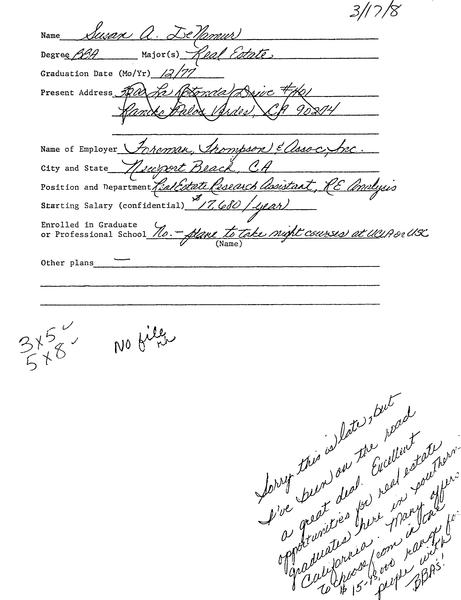 3/17/8
Name Susan A. DeNamur
Degree BBA Major(s) Real Estate
Graduation Date (Mo/Yr) 12/77
Present Address La Rotonda Drive #101
Rancho Palos Verdes, CA 90274
Name of Employer Foreman, Thompson & Assoc, Inc.
City and State Newport Beach, CA
Position and Department Real Estate Research Assistant, RE Analysis
Starting Salary (confidential) $17,680/year)
Enrolled in Graduate
or Professional School No. - plans to take night courses at UCLA or USC
(Name)
Other plans —
3x5 ✓
5x8 ✓
No file
Sorry this is late, but
I've been on the road
a great deal. Excellent
opportunities for real estate
graduates here in southern
California. Many offers
to choose from in the
$15-18,000 range for
people with
BBAs!